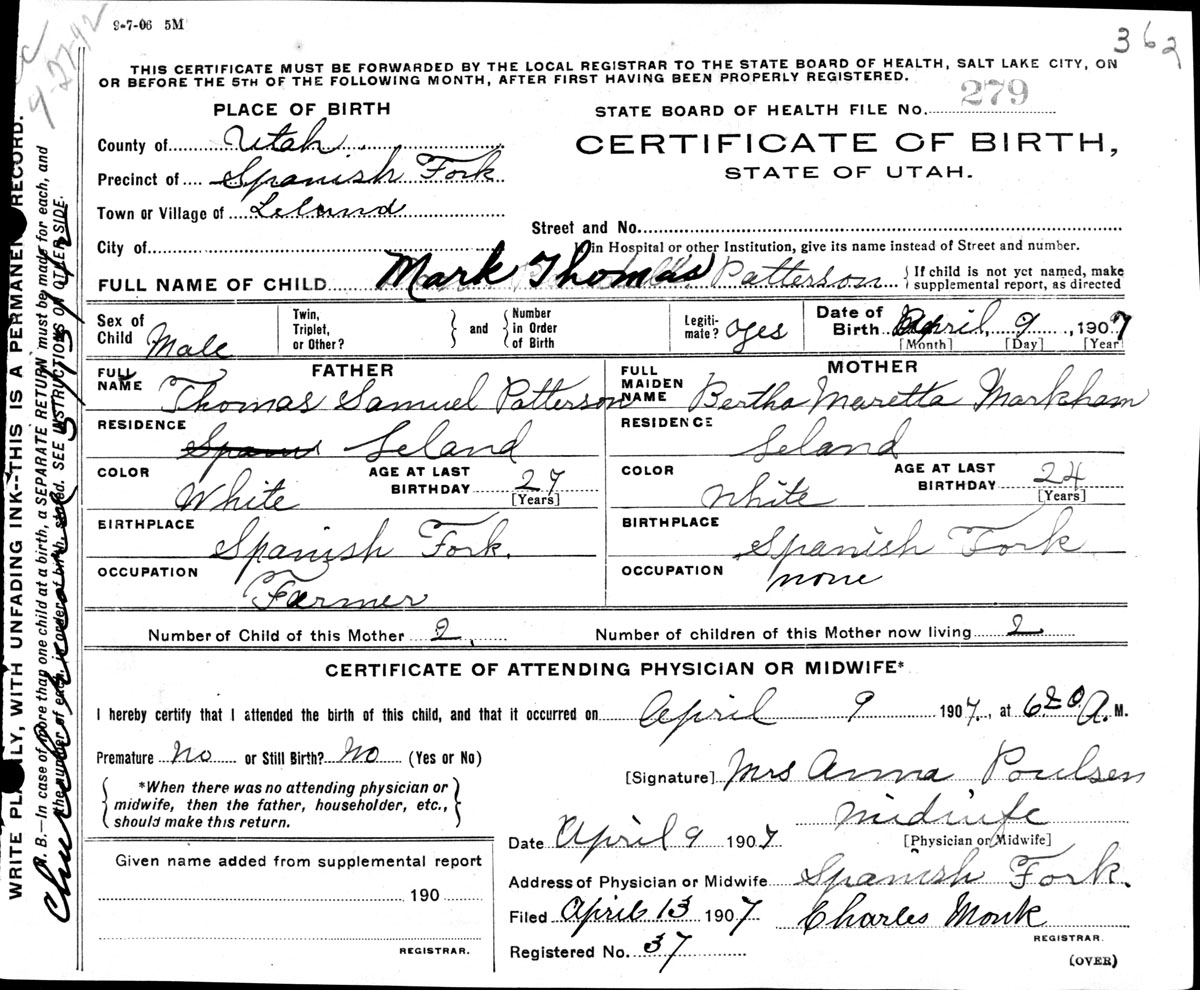 9-7-06 5M
362
4-27-92
THIS CERTIFICATE MUST BE FORWARDED BY THE LOCAL REGISTRAR TO THE STATE BOARD OF HEALTH, SALT LAKE CITY, ON
OR BEFORE THE 5TH OF THE FOLLOWING MONTH, AFTER FIRST HAVING BEEN PROPERLY REGISTERED.
PLACE OF BIRTH
STATE BOARD OF HEALTH FILE No. 279
County of Utah
CERTIFICATE OF BIRTH,
Precinct of Spanish Fork
STATE OF UTAH.
Town or Village of Leland
Street and No.
City of
in Hospital or other Institution, give its name instead of Street and number.
FULL NAME OF CHILD Mark Thomas Patterson
If child is not yet named, make
supplemental report, as directed
Sex of Child Male
Twin, Triplet, or Other?
and
Number in Order of Birth
Legiti-mate? yes
Date of Birth April, 9, 1907
[Month] [Day] [Year]
FATHER
FULL NAME Thomas Samuel Patterson
MOTHER
FULL MAIDEN NAME Bertha Maretta Markham
RESIDENCE Leland
RESIDENCE Leland
COLOR White
AGE AT LAST BIRTHDAY 27
[Years]
COLOR White
AGE AT LAST BIRTHDAY 24
[Years]
BIRTHPLACE Spanish Fork.
BIRTHPLACE Spanish Fork
OCCUPATION Farmer
OCCUPATION none
Number of Child of this Mother 2
Number of children of this Mother now living 2
CERTIFICATE OF ATTENDING PHYSICIAN OR MIDWIFE*
I hereby certify that I attended the birth of this child, and that it occurred on April 9 1907, at 6 20 A. M.
Premature No or Still Birth? No (Yes or No)
[Signature] Mrs Anna Poulsen
*When there was no attending physician or
midwife, then the father, householder, etc.,
should make this return.
midwife
[Physician or Midwife]
Date April 9 1907
Given name added from supplemental report
190
REGISTRAR.
Address of Physician or Midwife Spanish Fork.
Filed April 13 1907
Charles Monk
REGISTRAR.
Registered No. 37
(OVER)
WRITE PLAINLY, WITH UNFADING INK--THIS IS A PERMANENT RECORD.
N. B.—In case of more than one child at birth, a SEPARATE RETURN must be made for each, and
the number of each, in order of birth, stated. SEE INSTRUCTIONS ON OTHER SIDE.